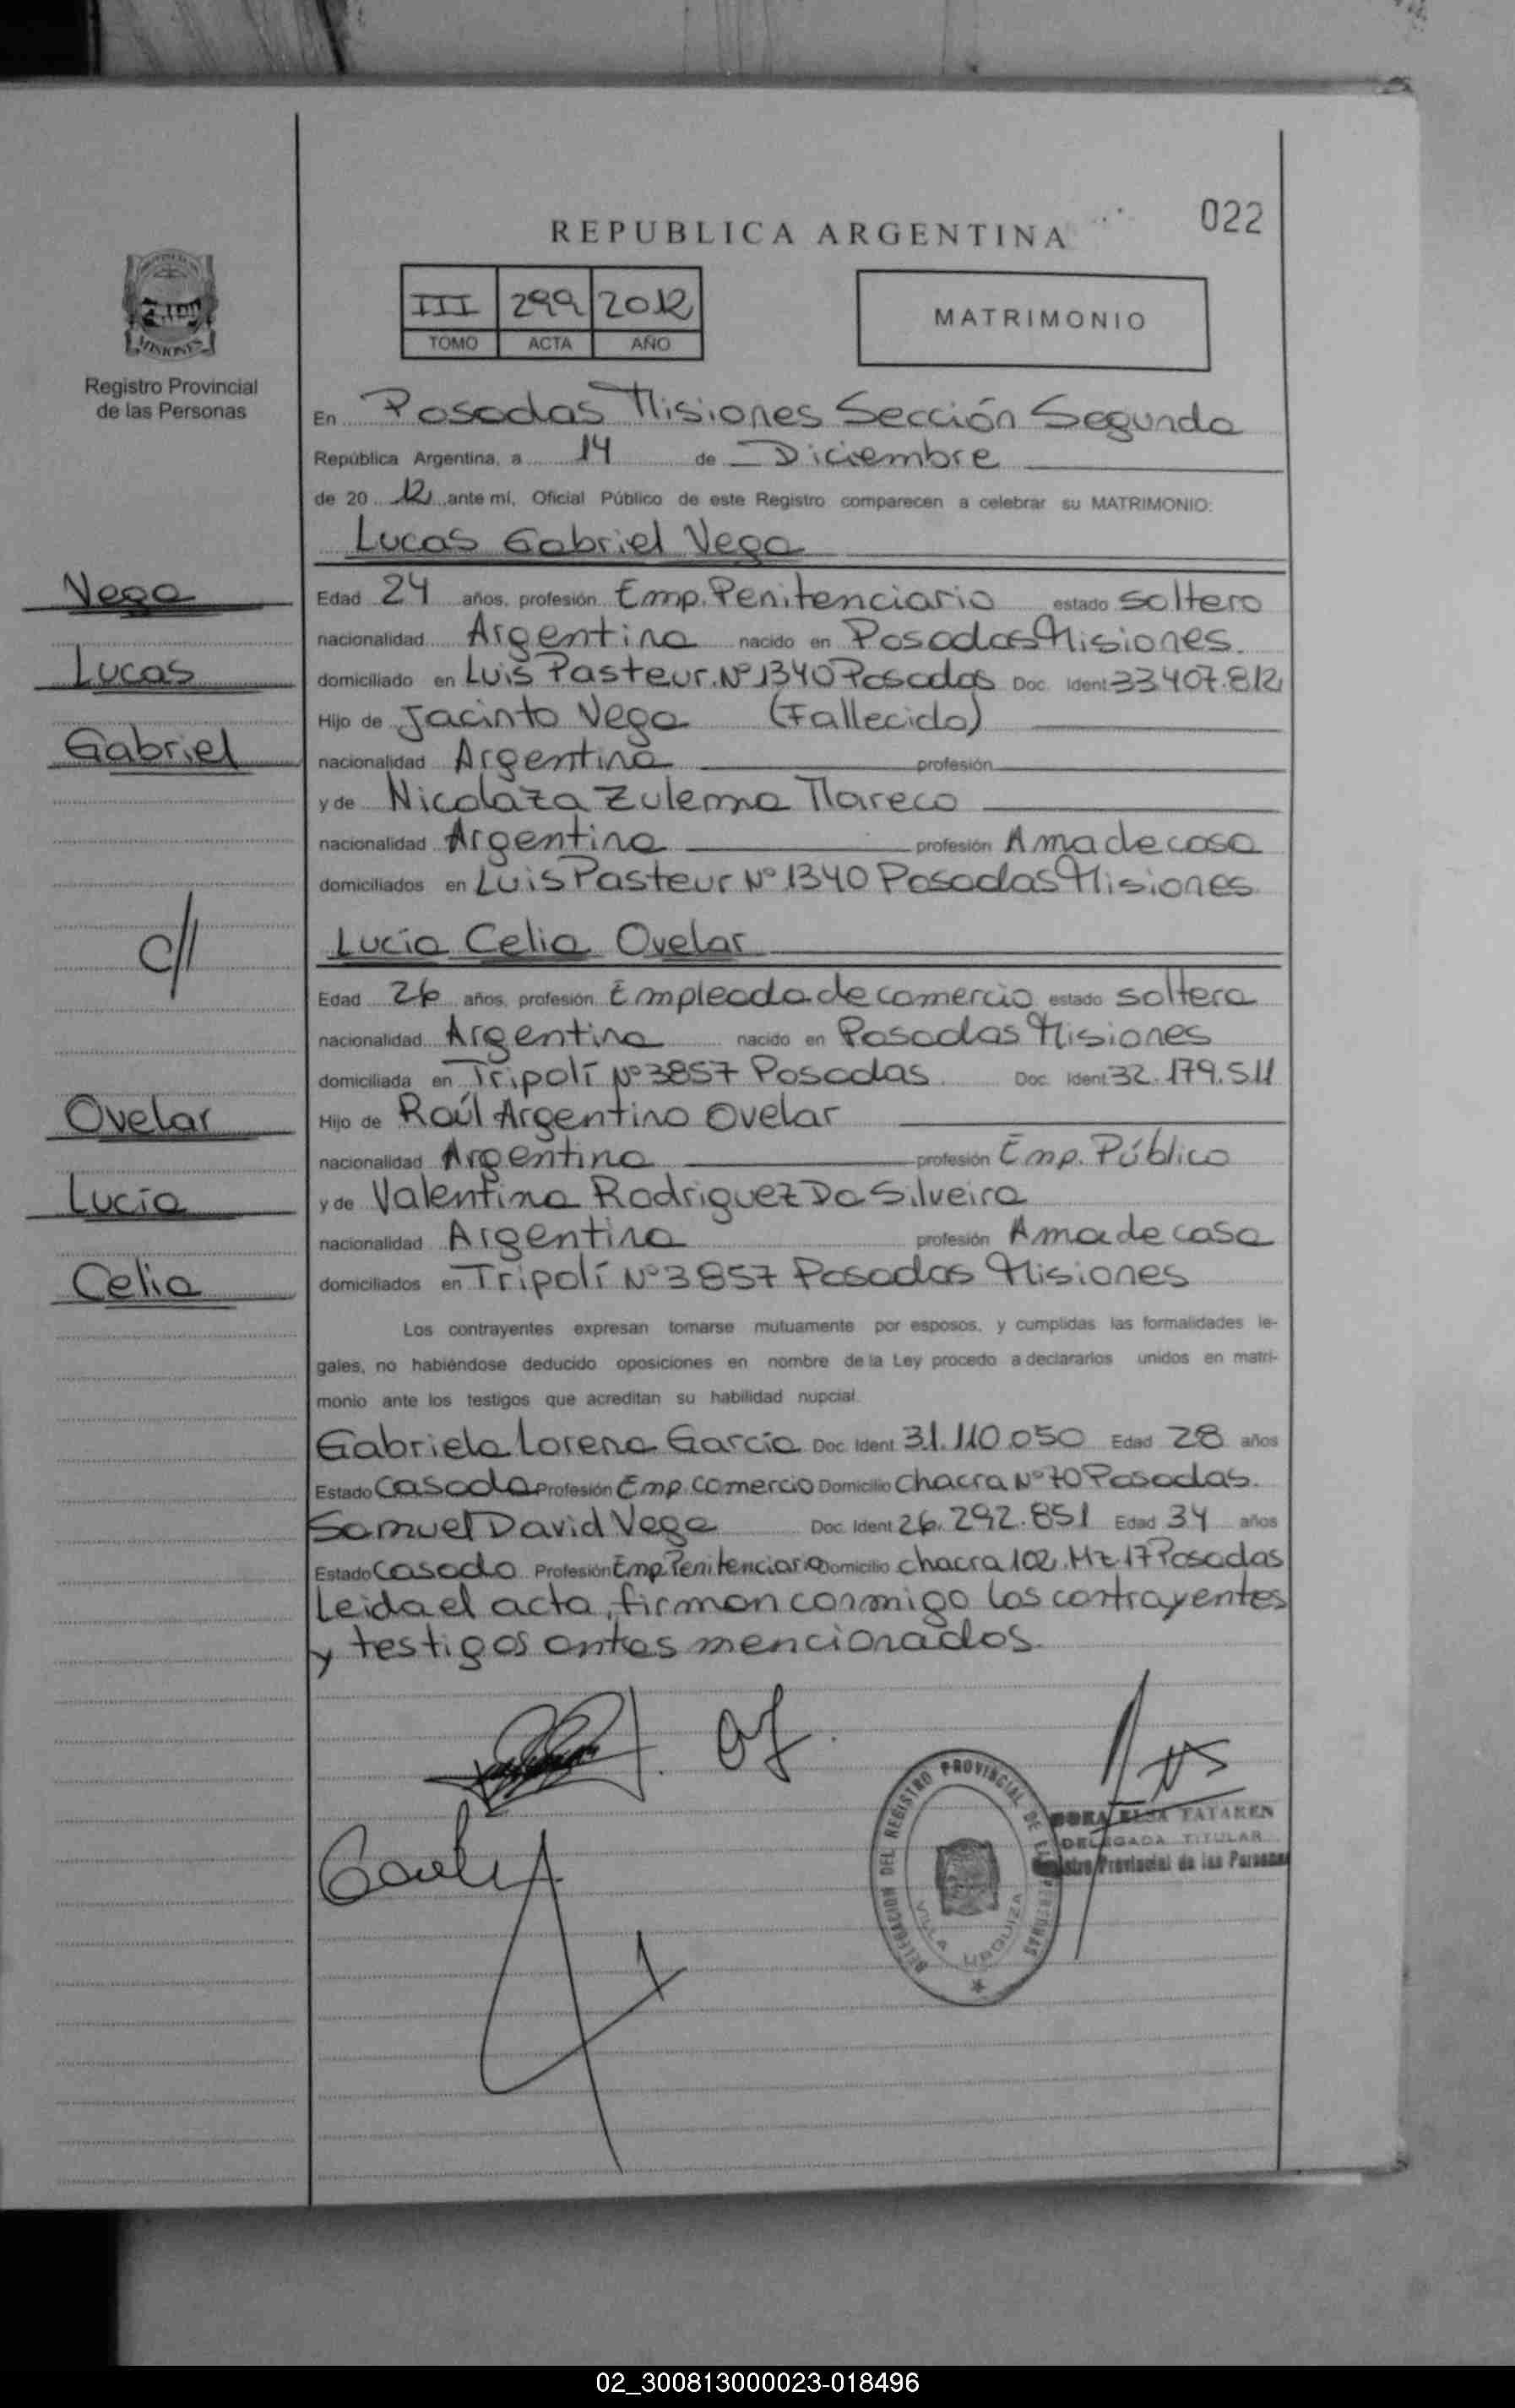 022
REPUBLICA ARGENTINA
III 299 2012
TOMO ACTA AÑO
MATRIMONIO
MISIONES
Registro Provincial
de las Personas
En Posadas Misiones Sección Segunda
República Argentina, a 14 de Diciembre
de 20 12 ante mí, Oficial Público de este Registro comparecen a celebrar su MATRIMONIO:
Lucas Gabriel Vega
Vega
Lucas
Gabriel
Edad 24 años, profesión Emp. Penitenciario estado soltero
nacionalidad Argentina nacido en Posadas Misiones.
domiciliado en Luis Pasteur Nº 1340 Posadas Doc. Ident 33.407.812
Hijo de Jacinto Vega (Fallecido)
nacionalidad Argentina profesión
y de Nicolaza Zulema Mareco
nacionalidad Argentina profesión Ama de casa
domiciliados en Luis Pasteur Nº 1340 Posadas Misiones
c//
Lucía Celia Ovelar
Edad 26 años, profesión Empleada de comercio estado soltera
nacionalidad Argentina nacido en Posadas Misiones
domiciliada en Tripolí Nº 3857 Posadas Doc. Ident 32.179.511
Ovelar
Lucía
Celia
Hijo de Raúl Argentino Ovelar
nacionalidad Argentina profesión Emp. Público
y de Valentina Rodriguez Da Silveira
nacionalidad Argentina profesión Ama de casa
domiciliados en Tripolí Nº 3857 Posadas Misiones
Los contrayentes expresan tomarse mutuamente por esposos, y cumplidas las formalidades le-
gales, no habiéndose deducido oposiciones en nombre de la Ley procedo a declararlos unidos en matri-
monio ante los testigos que acreditan su habilidad nupcial.
Gabriela Lorena García Doc. Ident 31.110.050 Edad 28 años
Estado Casada Profesión Emp. Comercio Domicilio Chacra Nº 70 Posadas.
Samuel David Vega Doc. Ident 26.292.851 Edad 34 años
Estado Casado Profesión Emp. Penitenciario Domicilio chacra 102. Mz. 17 Posadas
Leida el acta, firman conmigo los contrayentes
y testigos antes mencionados.
DELEGACION DEL REGISTRO PROVINCIAL DE LAS PERSONAS
VILLA URQUIZA
ELSA
DELEGADA TITULAR
Registro Provincial de las Personas
02_300813000023-018496